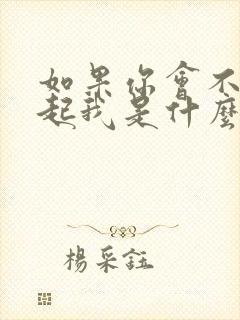 如果你會不
起我是什麼
楊采鈺